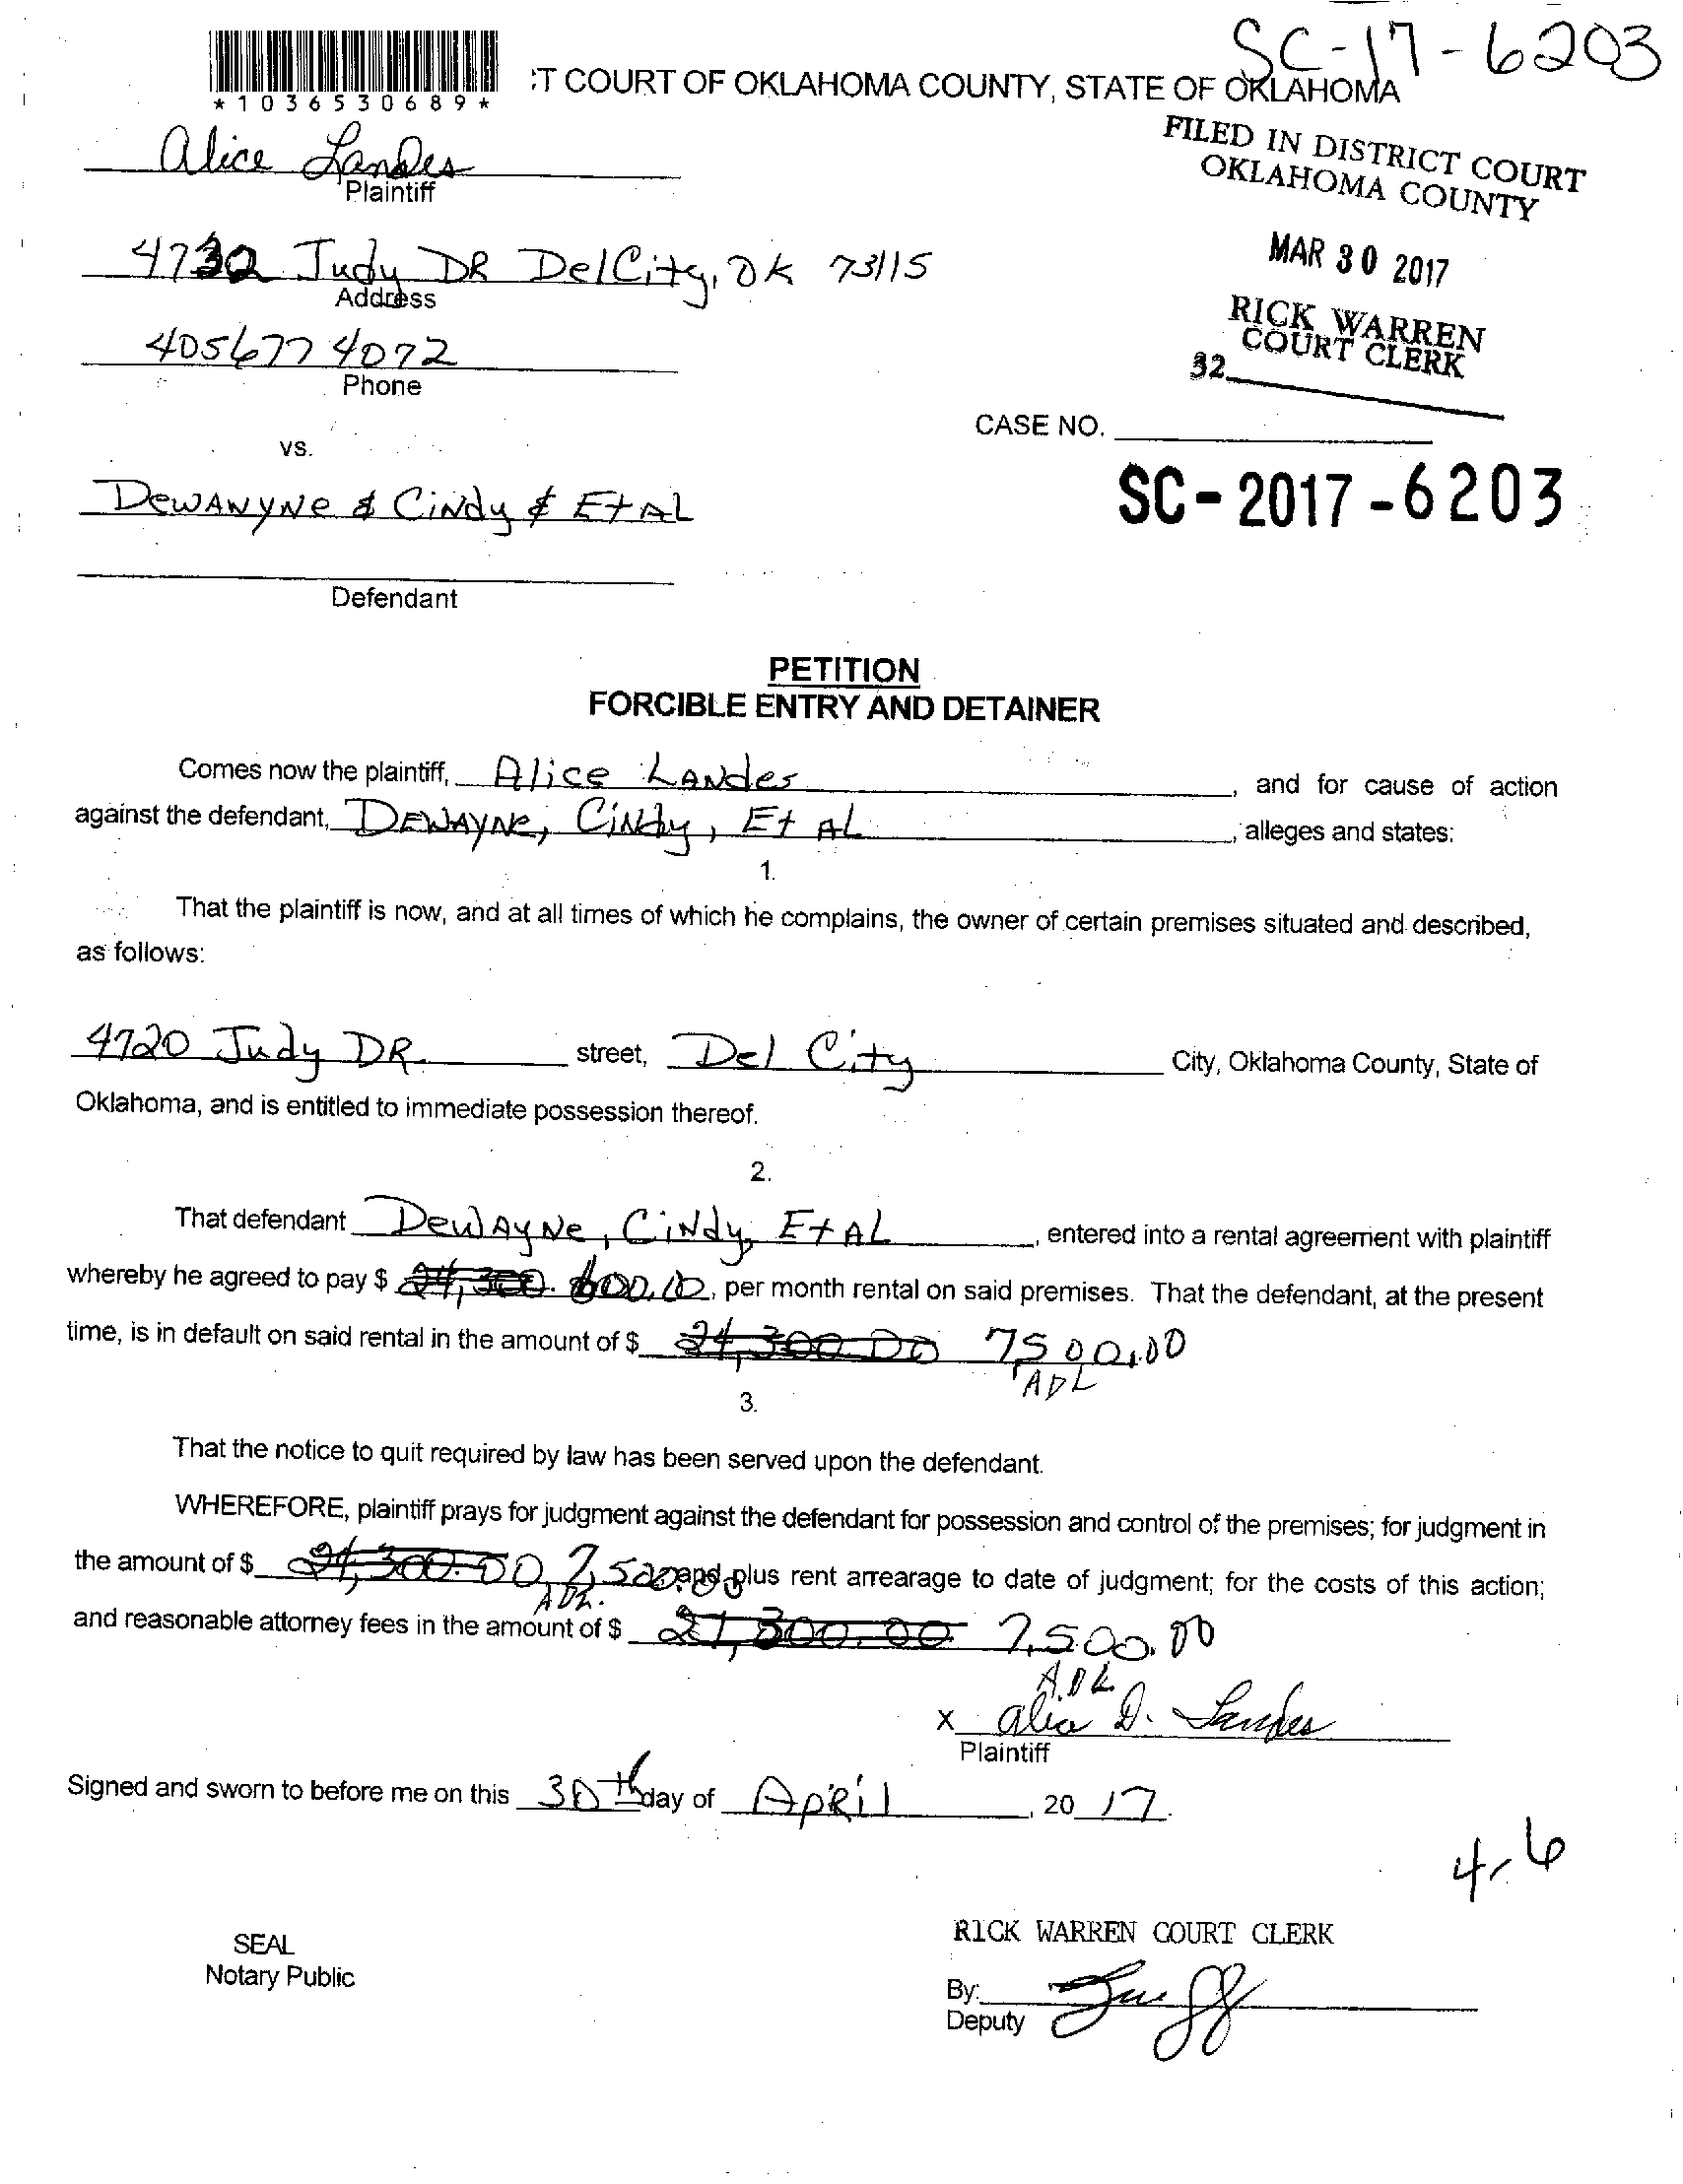 SC-17-6203
*1036530689*
:T COURT OF OKLAHOMA COUNTY, STATE OF OKLAHOMA
Alice Landes
Plaintiff
FILED IN DISTRICT COURT
OKLAHOMA COUNTY
MAR 30 2017
RICK WARREN
COURT CLERK
32
4732 Judy DR Del City, OK 73115
Address
4056774072
Phone
CASE NO.
vs.
SC-2017-6203
DEWANYNE & CiNdy & Et AL
Defendant
PETITION
FORCIBLE ENTRY AND DETAINER
Comes now the plaintiff, Alice LANdes, and for cause of action
against the defendant, DEWAYNE, CiNdy, Et AL, alleges and states:
1.
That the plaintiff is now, and at all times of which he complains, the owner of certain premises situated and described,
as follows:
4720 Judy DR. street, Del City City, Oklahoma County, State of
Oklahoma, and is entitled to immediate possession thereof.
2.
That defendant DewAyNe, CiNdy, Et AL, entered into a rental agreement with plaintiff
whereby he agreed to pay $ 24,300. 600.00, per month rental on said premises. That the defendant, at the present
time, is in default on said rental in the amount of $ 24,300.00 7500.00
ADL
3.
That the notice to quit required by law has been served upon the defendant.
WHEREFORE, plaintiff prays for judgment against the defendant for possession and control of the premises; for judgment in
the amount of $ 24,300.00 7,500.00 and plus rent arrearage to date of judgment; for the costs of this action;
ADL.
and reasonable attorney fees in the amount of $ 21,300.00 7,500.00
A.D.L.
x Alice D. Landes
Plaintiff
Signed and sworn to before me on this 30th day of April, 20 17.
4-6
SEAL
Notary Public
RICK WARREN COURT CLERK
By:
Deputy